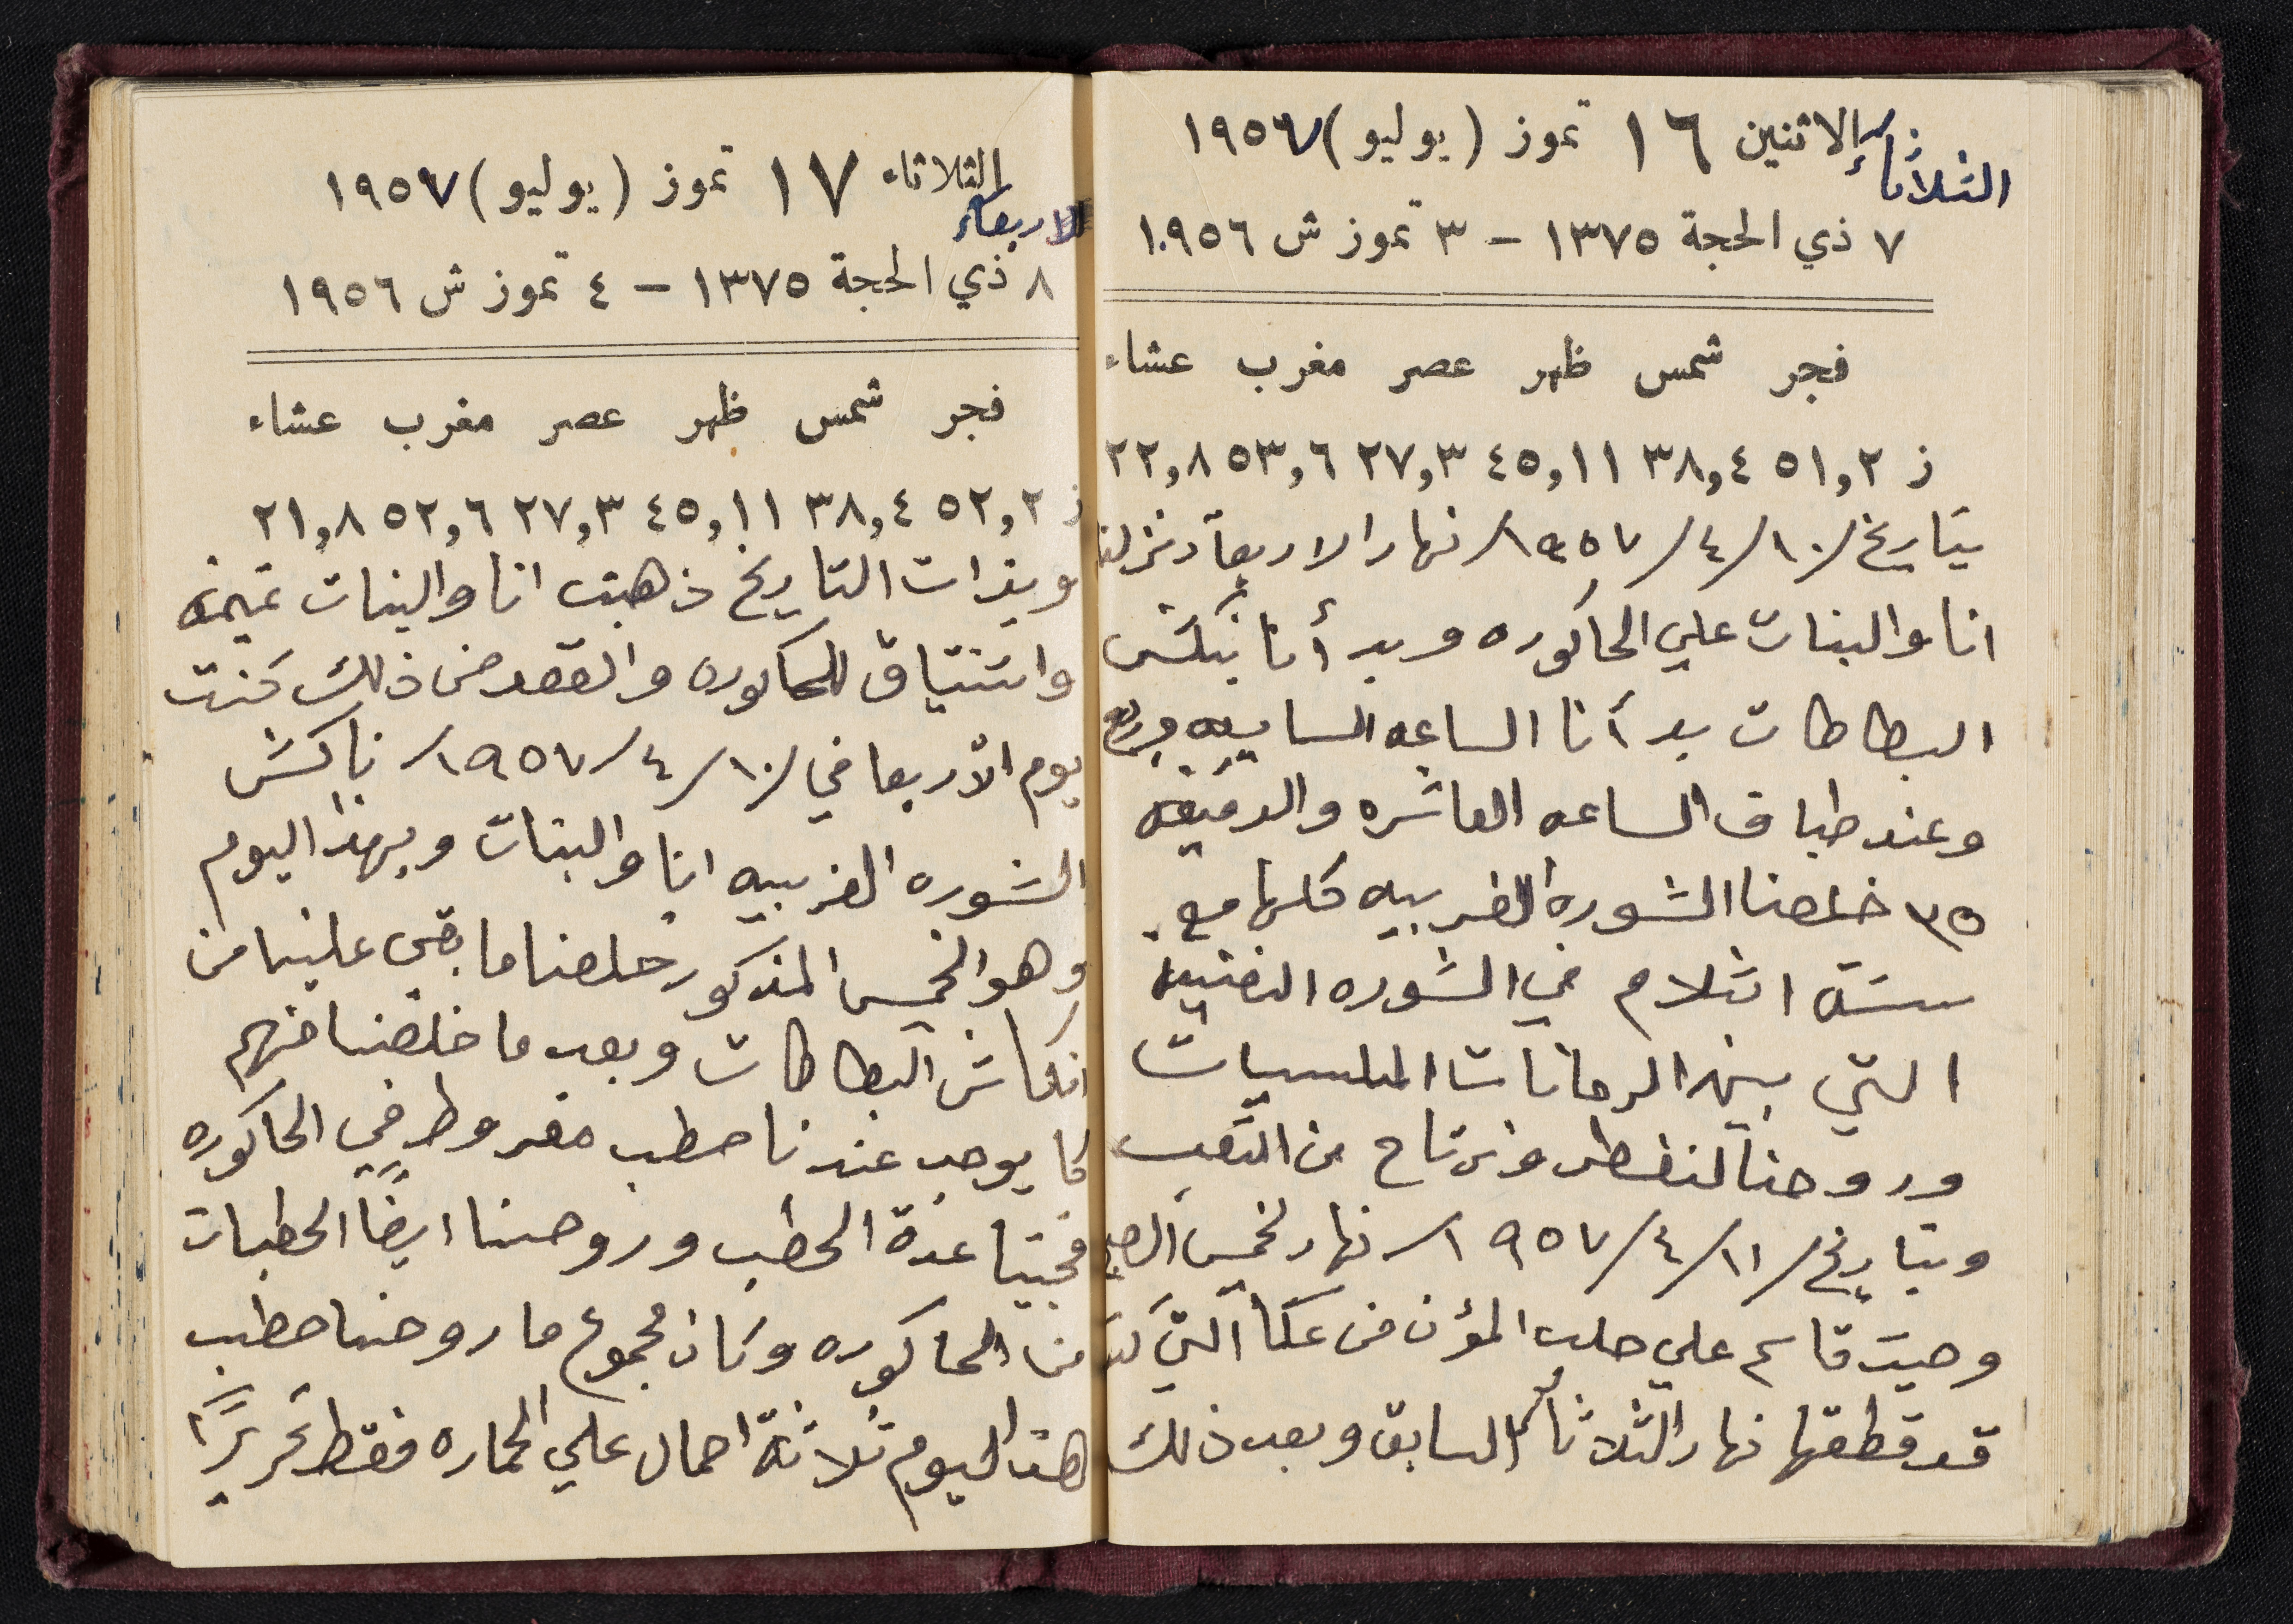 الاثنين ١٦ تموز (يوليو) ١٩٥٧
الثلاثاء
٧ ذي الحجة ١٣٧٥ – ٣ تموز ش ١٩٥٦
فجر شمس ظهر عصر مغرب عشاء
ز ٥١,٢ ٣٨,٤ ٤٥,١١ ٢٧,٣ ٥٣,٦ ٢٢,٨
بتاريخ /١٠/٤/١٩٥٧/ نهار الاربعآء نزلنا
انا والبنات علي الحاكوره وبدأنا بنكش
البطاطات بدأنا الساعه السابعه وربع
وعند طباق الساعه العاشره والدقيقه
٣٥ خلصنا الشوره الغربيه كلها مع
ستة اتلام في الشوره
التي بين الرمانات الملسيات
وروحنا لنفطر ونرتاح من التعب
وبتاريخ /١١/٤/١٩٥٧/ نهار لخميس الصبح
وصيت قاسم علي جلب المؤن من عكا التي كنت
قد قطعتها نهار الثلاثاء السابق وبعد ذلك
الثلاثاء ١٧ تموز (يوليو) ١٩٥٧
الاربعاء
٨ ذي الحجة ١٣٧٥ – ٤ تموز ش ١٩٥٦
فجر شمس ظهر عصر مغرب عشاء
ز ٥٢,٢ ٣٨,٤ ٤٥,١١ ٢٧,٣ ٥٢,٦ ٢١,٨
وبذات التاريخ ذهبت انا والبنات تميمه
واشتياق للحاكوره والقصد من ذلك كنت
يوم الأربعا في /١٠/٤/١٩٥٧/ ناكش
الشوره الغربيه انا والبنات وبهذا اليوم
وهو الخميس المذكور خلصنا ما بقي علينا من
انكاش البطاطات وبعد ما خلصنا منهم
كما يوجد عندنا حطب مفروط في الحاكوره
فجبنا عدة الحطب وروحنا ايضًا الحطبات
من الحاكوره وكان مجموع ما روحنا حطب
هذا اليوم ثلاثة احمال علي الحماره فقط تحريرًا